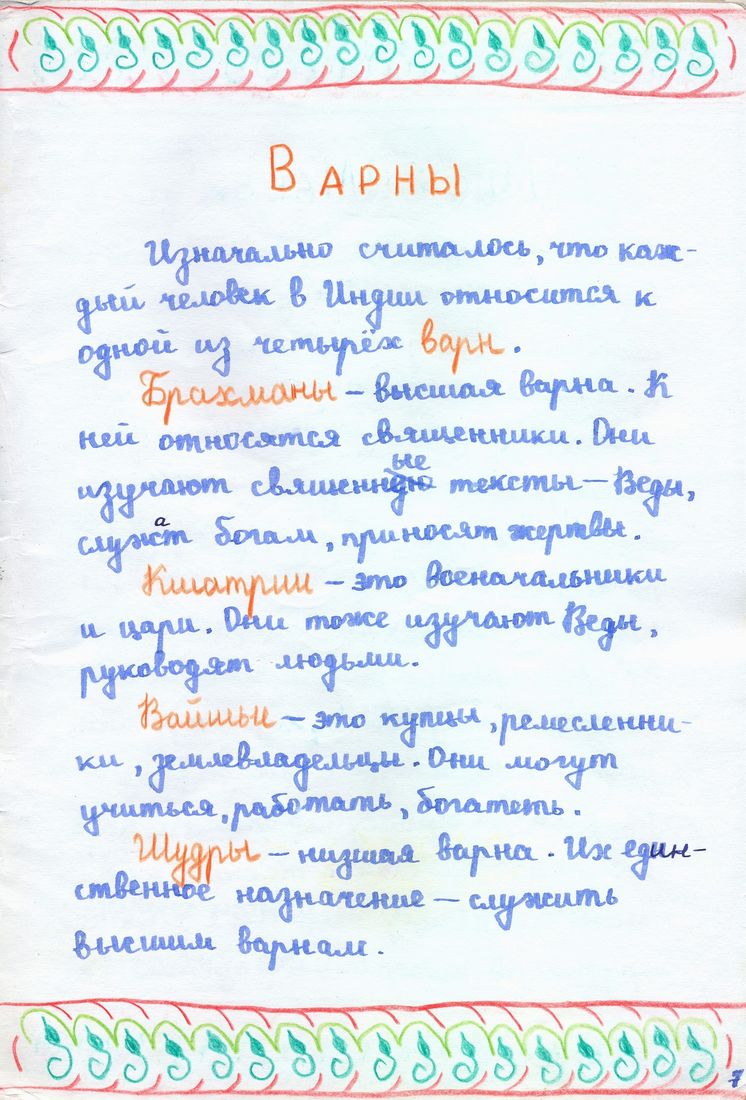 Варны
Изначально считалось, что каж-
дый человек в Индии относится к
одной из четырёх варн.
Брахманы – высшая варна. К
ней относятся священники. Они
изучают священные тексты – Веды,
служат богам, приносят жертвы.
Кшатрии – это военачальники
и цари. Они тоже изучают Веды,
руководят людьми.
Вайшьи – это купцы, ремесленни-
ки, землевладельцы. Они могут
учиться, работать, богатеть.
Шудры – низшая варна. Их един-
ственное назначение – служить
высшим варнам.
7